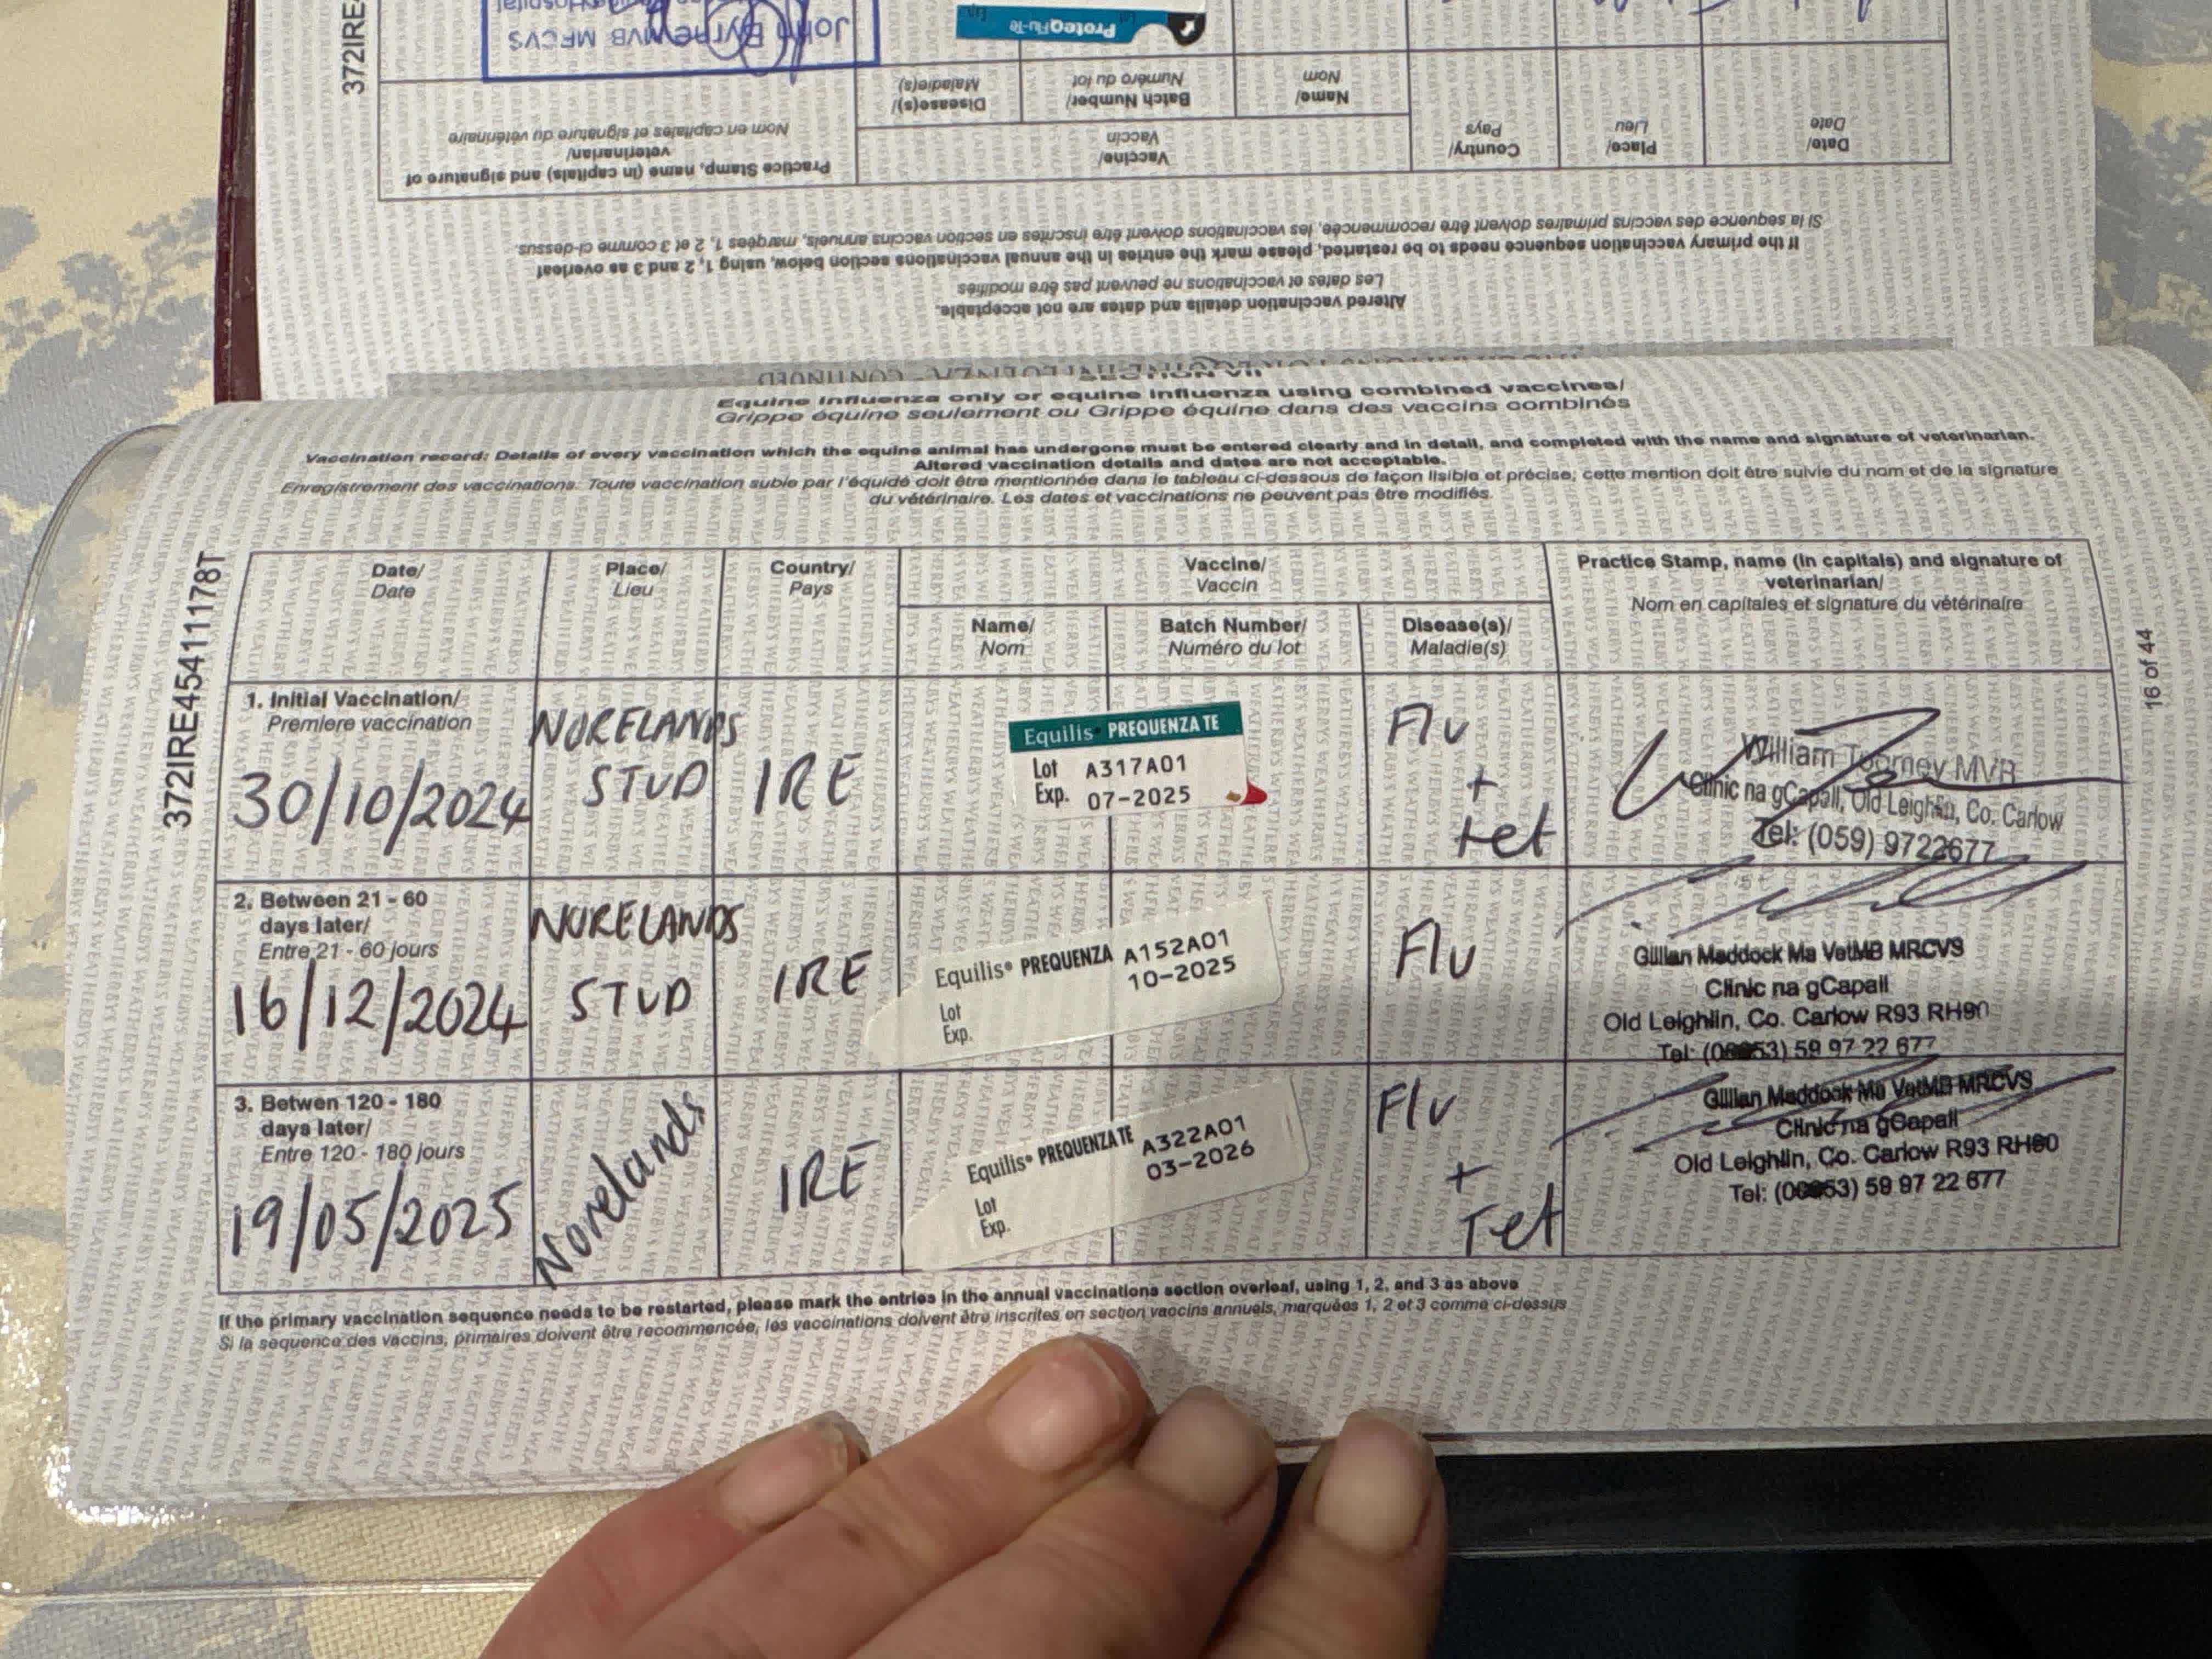 372IRE4
John Byrne MVB MRCVS
ProteqFlu-Te
Practice Stamp, name (in capitals) and signature of
veterinarian/
Nom en capitales et signature du vétérinaire
Vaccine/
Vaccin
Disease(s)/
Maladie(s)
Batch Number/
Numéro du lot
Name/
Nom
Country/
Pays
Place/
Lieu
Date/
Date
If the primary vaccination sequence needs to be restarted, please mark the entries in the annual vaccinations section below, using 1, 2 and 3 as overleaf
Si la sequence des vaccins primaires doivent être recommencée, les vaccinations doivent être inscrites en section vaccins annuels, marquées 1, 2 et 3 comme ci-dessus.
Altered vaccination details and dates are not acceptable.
Les dates et vaccinations ne peuvent pas être modifiés
CONTINUED
SECTION VII
Equine influenza only or equine influenza using combined vaccines/
Grippe équine seulement ou Grippe équine dans des vaccins combinés
Vaccination record: Details of every vaccination which the equine animal has undergone must be entered clearly and in detail, and completed with the name and signature of veterinarian.
Altered vaccination details and dates are not acceptable.
Enregistrement des vaccinations: Toute vaccination subie par l'équidé doit être mentionnée dans le tableau ci-dessous de façon lisible et précise; cette mention doit être suivie du nom et de la signature
du vétérinaire. Les dates et vaccinations ne peuvent pas être modifiés.
372IRE45411178T
16 of 44
Date/
Date
Place/
Lieu
Country/
Pays
Vaccine/
Vaccin
Name/
Nom
Batch Number/
Numéro du lot
Disease(s)/
Maladie(s)
Practice Stamp, name (in capitals) and signature of
veterinarian/
Nom en capitales et signature du vétérinaire
1. Initial Vaccination/
Premiere vaccination
30/10/2024
NORELANDS
STUD
IRE
Equilis® PREQUENZA TE
Lot A317A01
Exp. 07-2025
Flu
+
tet
William Toomey MVB
Clinic na gCapall, Old Leighlin, Co. Carlow
Tel: (059) 9722677
2. Between 21 - 60
days later/
Entre 21 - 60 jours
16/12/2024
NORELANDS
STUD
IRE
Equilis® PREQUENZA A152A01
10-2025
Lot
Exp.
Flu
Gillian Maddock Ma VetMB MRCVS
Clinic na gCapall
Old Leighlin, Co. Carlow R93 RH90
Tel: (00353) 59 97 22 677
3. Betwen 120 - 180
days later/
Entre 120 - 180 jours
19/05/2025
Norelands
IRE
Equilis® PREQUENZA TE A322A01
03-2026
Lot
Exp.
Flu
+
Tet
Gillian Maddock Ma VetMB MRCVS
Clinic na gCapall
Old Leighlin, Co. Carlow R93 RH90
Tel: (00353) 59 97 22 677
If the primary vaccination sequence needs to be restarted, please mark the entries in the annual vaccinations section overleaf, using 1, 2, and 3 as above
Si la sequence des vaccins, primaires doivent être recommencée, les vaccinations doivent être inscrites en section vaccins annuels, marquées 1, 2 et 3 comme ci-dessus